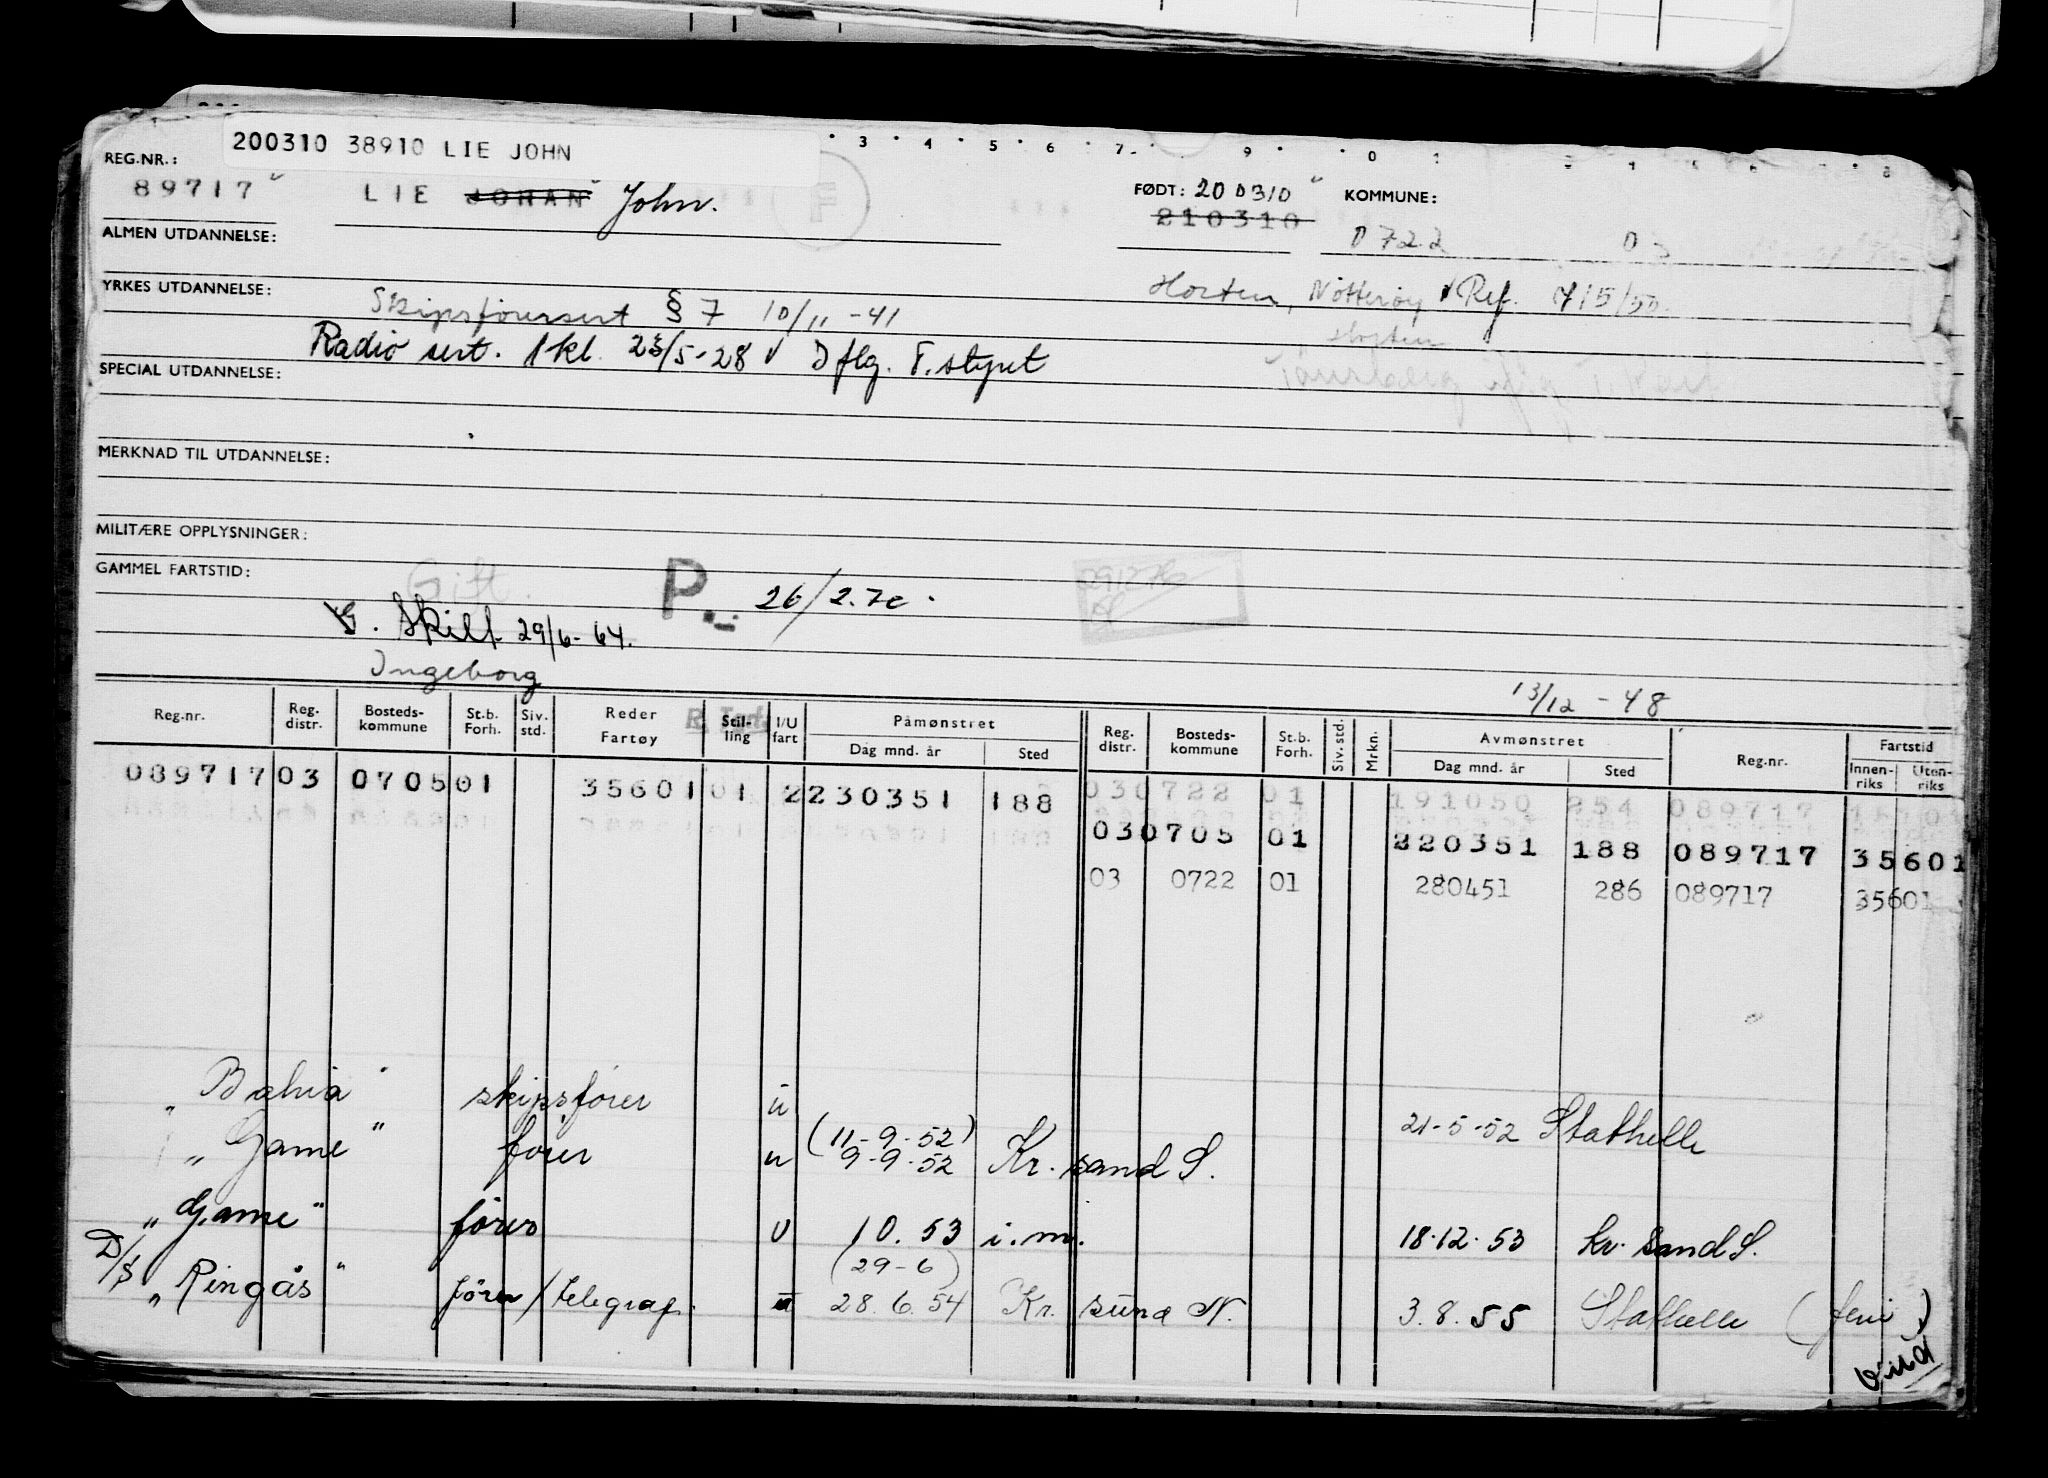 200310 38910 LIE JOHN
3 4 5 6 7 9 0 1
REG.NR.:
89717 LIE JOHAN John.
FØDT: 200310 KOMMUNE:
210310 0722 03
ALMEN UTDANNELSE:
YRKES UTDANNELSE: Horten, Nøtterøy Ref. 715/50
Skipsførersert § 7 10/11-41
Horten
Radio sert. 1 kl. 23/5-28 V Dflg. T. styret
Tønsberg
SPECIAL UTDANNELSE:
MERKNAD TIL UTDANNELSE:
MILITÆRE OPPLYSNINGER:
GAMMEL FARTSTID:
Gift.
P. 26/2.70.
091276
G. Skilt 29/6-64.
Ingeborg
13/12-48
Reg.nr. Reg. distr. Bosteds-kommune St.b. Forh. Siv. std. Reder Fartøy Stil-ling I/U fart Påmønstret Dag mnd. år Sted Reg. distr. Bosteds-kommune St.b. Forh. Siv. std. Mrkn. Avmønstret Dag mnd. år Sted Reg.nr. Fartstid Innen-riks Uten-riks
089717 03 0705 01 35601 01 2 230351 188 03 0722 01 191050 254 089717
03 0705 01 220351 188 089717 35601
03 0722 01 280451 286 089717 35601
"Bahia" skipsfører u 21-5-52 Stathelle
"Game" fører u (11-9-52) 9-9-52 Kr. sand S.
"Game" fører U 10.53 i.m. 18.12.53 Kr. sand S.
(29-6)
D/S "Ringås" fører/telegraf. u 28.6.54 Kr. sund N. 3.8.55 Stathelle (feri)